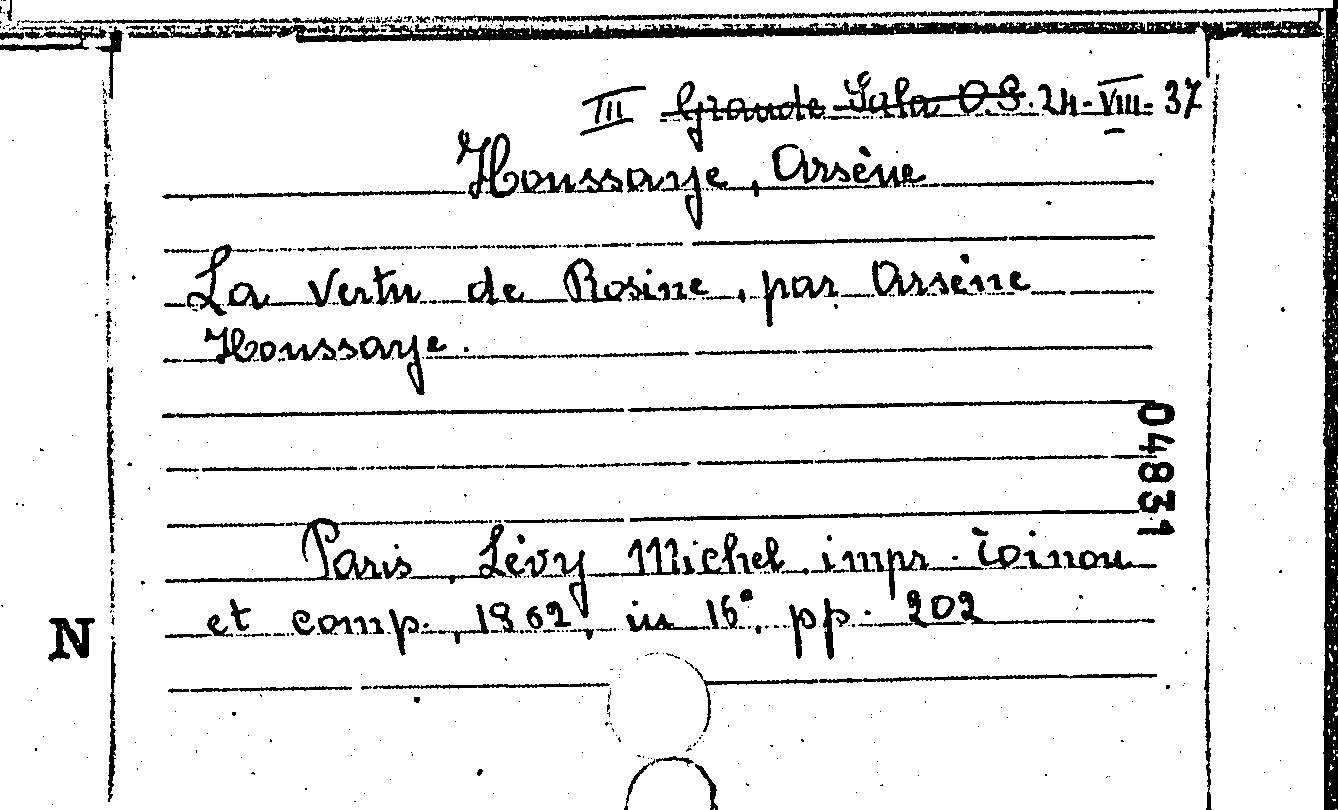 III Grande Sala O.G. 24-VIII-37
Houssaye, Arsène
La Vertu de Rosine, par Arsène
Houssaye.
04831
Paris, Lévy Michel, impr. Toinou
et comp., 1862, in 16°, pp. 202
N